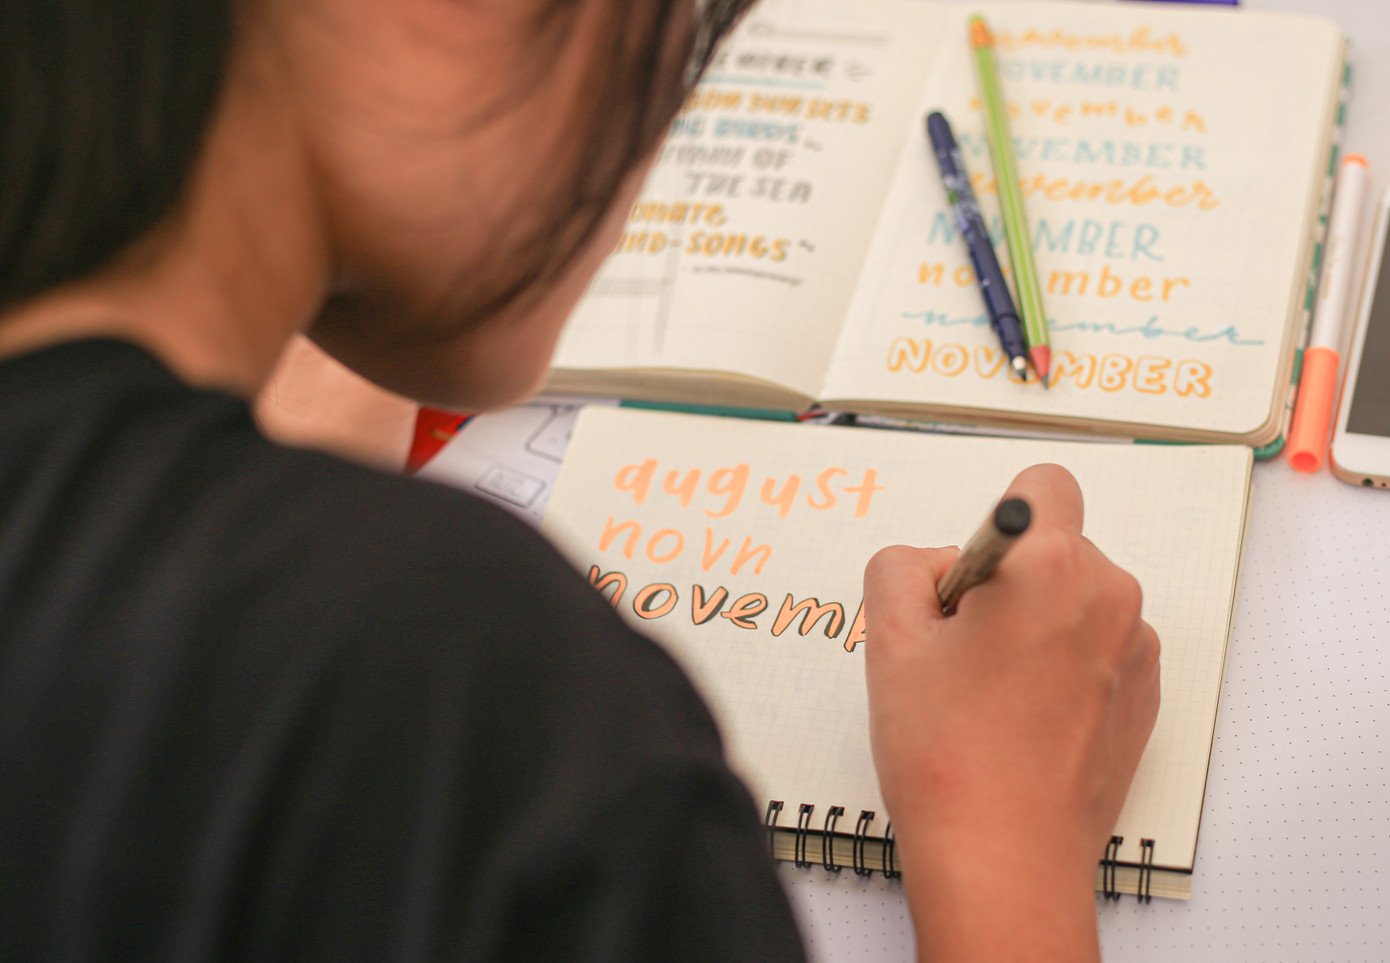 SUNSETS
BIRDS
OF
THE SEA
SONGS
november
NOVEMBER
november
NOVEMBER
november
NOVEMBER
november
november
NOVEMBER
august
novn
novemb